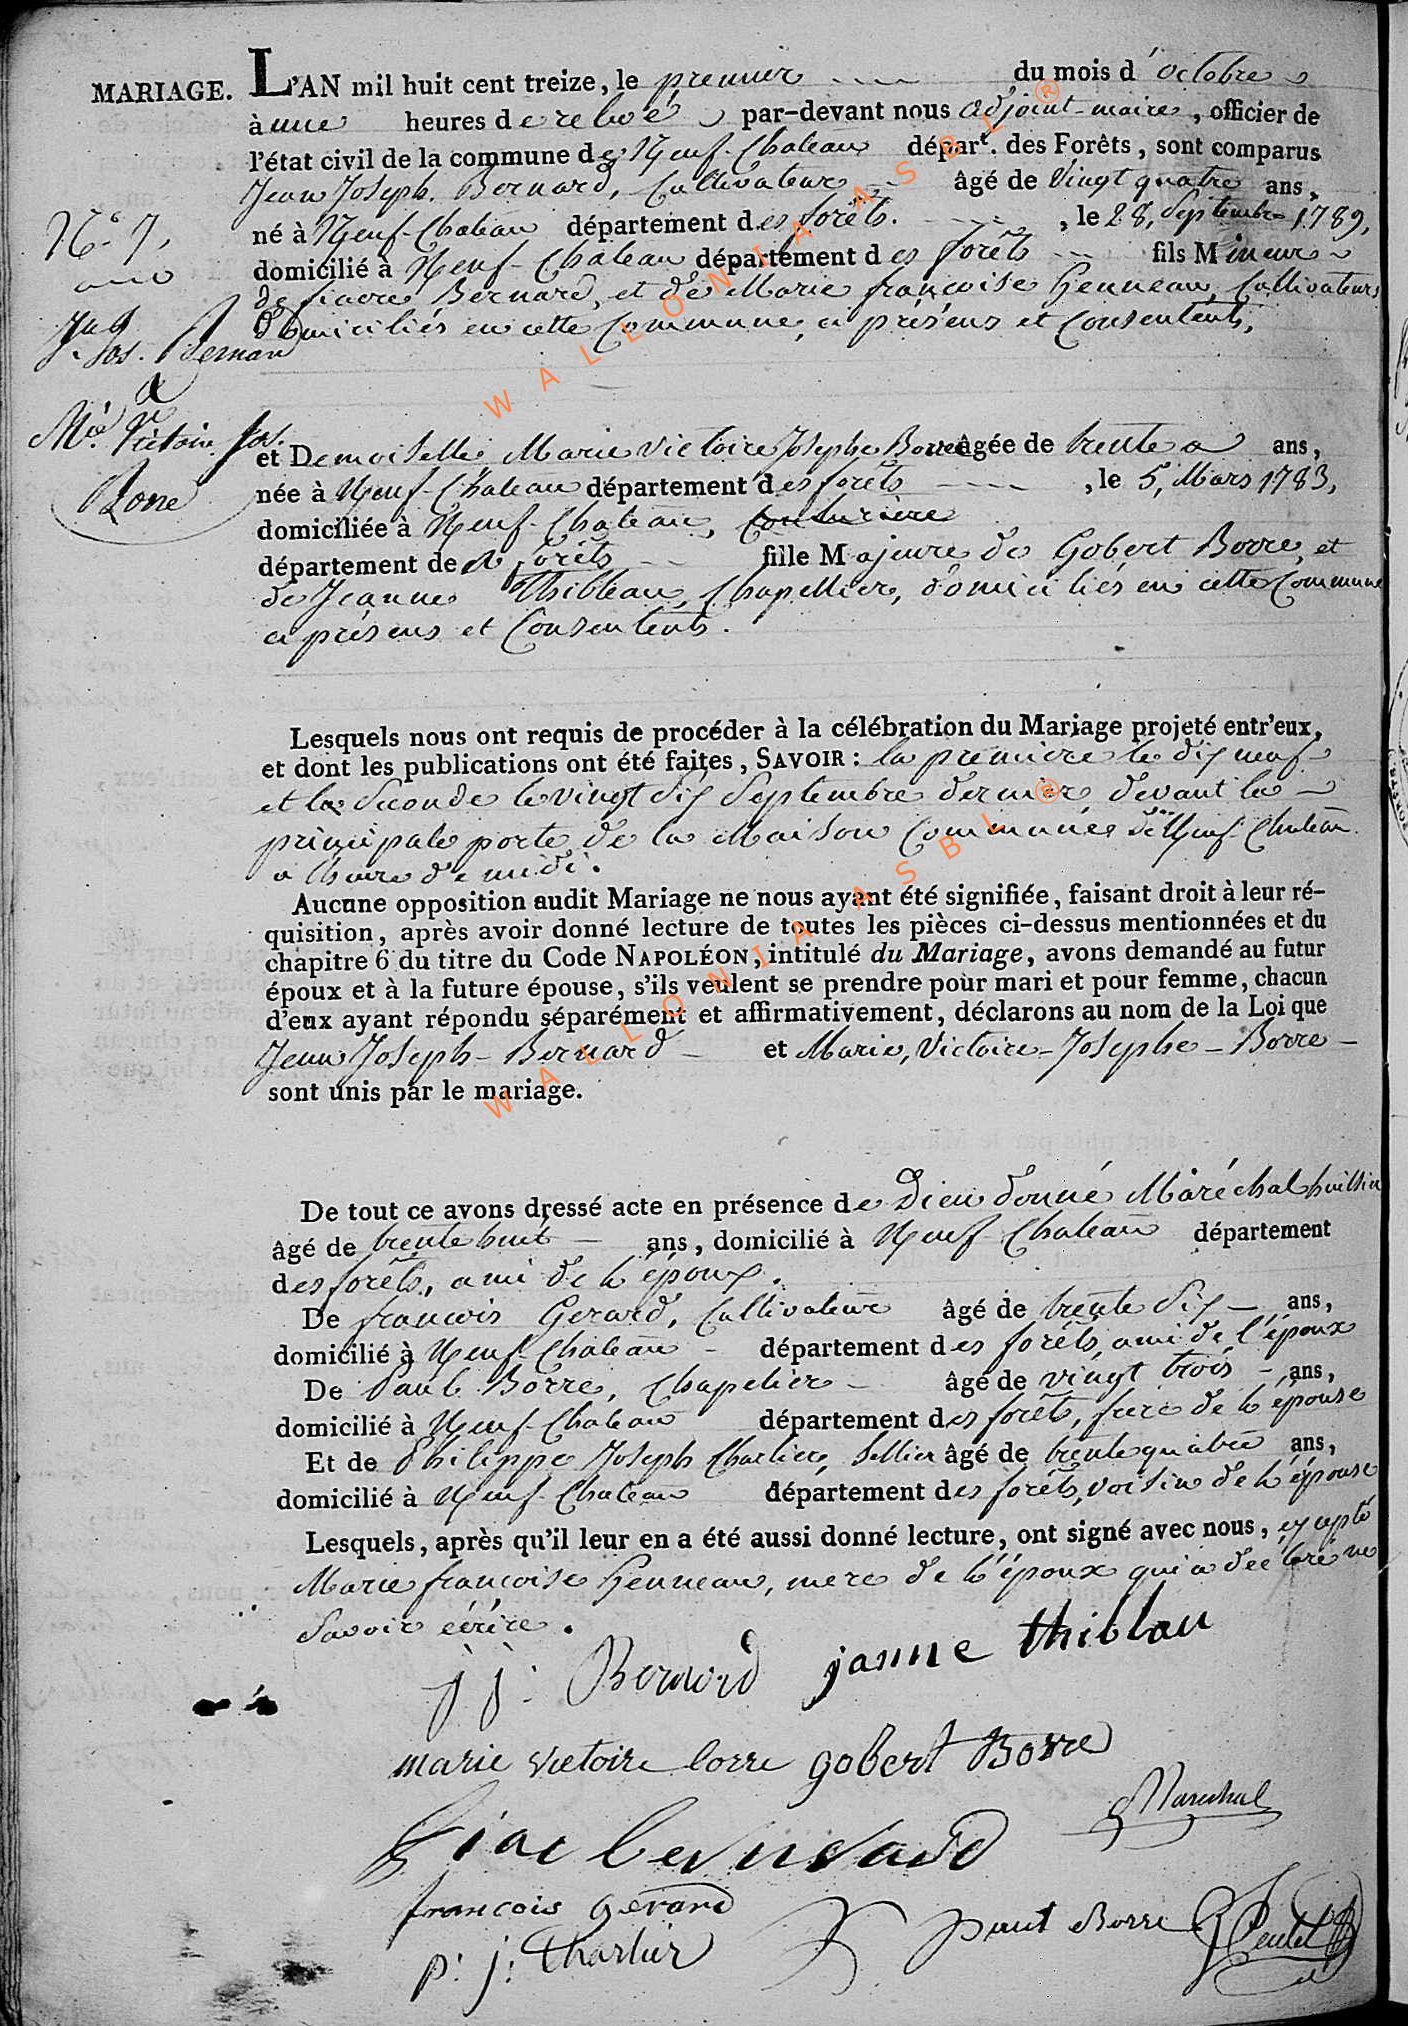 MARIAGE. L'AN mil huit cent treize, le premier du mois d'octobre
à une heures de relevé par-devant nous adjoint-maire, officier de
l'état civil de la commune de Neuf-Chateau départ. des Forêts, sont comparus
Jean Joseph Bernard, Cultivateur âgé de vingt quatre ans,
né à Neuf-Chateau département des forêts. , le 28, Septembre 1789,
domicilié à Neuf-Chateau département des forêts fils Mineur
de fiacre Bernard, et de Marie françoise Henneau, Cultivateurs
Domiciliés en cette Commune, a présens et Consentents,
N.° 7,
J. Jos. Bernard
&
M.ie Victoire Jos.
Borré
et Demoiselle Marie Victoire Josephe Borre âgée de trente ans,
née à Neuf-Chateau département des forêts , le 5, Mars 1783,
domiciliée à Neuf-Chateau, Couturière
département des forêts fille Majeure de Gobert Borre, et
de Jeanne Thibleau, Chapellier, domiciliés en cette Commune
a présens et Consentents.
Lesquels nous ont requis de procéder à la célébration du Mariage projeté entr'eux,
et dont les publications ont été faites, SAVOIR : la première le dix neuf
et la Seconde le vingt six Septembre dernier devant la
principale porte de la Maison Commune de Neuf-Chateau
a l'heure de midi.
Aucune opposition audit Mariage ne nous ayant été signifiée, faisant droit à leur ré-
quisition, après avoir donné lecture de toutes les pièces ci-dessus mentionnées et du
chapitre 6 du titre du Code NAPOLÉON, intitulé du Mariage, avons demandé au futur
époux et à la future épouse, s'ils veulent se prendre pour mari et pour femme, chacun
d'eux ayant répondu séparément et affirmativement, déclarons au nom de la Loi que
Jean Joseph-Bernard et Marie, Victoire-Josephe-Borre
sont unis par le mariage.
De tout ce avons dressé acte en présence de Dieu donné Maréchal huissier
âgé de trente huit ans, domicilié à Neuf-Chateau département
des forêts, ami de l'époux.
De francois Gerard, Cultivateur âgé de trente six ans,
domicilié à Neuf-Chateau département des forêts, ami de l'époux
De Paul Borre, Chapelier âgé de vingt trois ans,
domicilié à Neuf-Chateau département des forêts, frere de l'épouse
Et de Philippe Joseph Charlier, Sellier âgé de trente quatre ans,
domicilié à Neuf-Chateau département des forêts, voisin de l'épouse
Lesquels, après qu'il leur en a été aussi donné lecture, ont signé avec nous, excepté
Marie françoise Henneau, mere de l'époux qui a déclaré ne
Savoir écrire.
j j. Bernard janne thiblau
marie victoire borre gobert Borre
Marechal
fiac bernard
francois gerard
paul Borre
p. j. Charlier
WALLONIA ASBL ®
WALLONIA ASBL ®